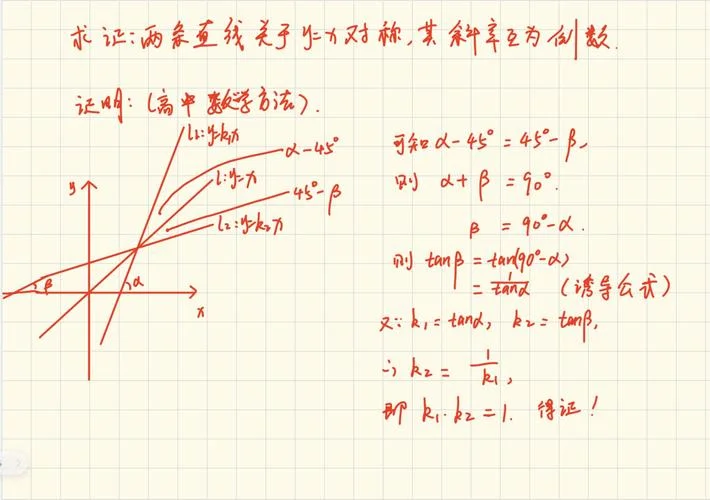 求证:两条直线关于y=x对称,其斜率互为倒数.
证明:(高中数学方法).
l1:y=k1x
α-45°
l:y=x
45°-β
l2:y=k2x
y
β
α
x
可知α-45°=45°-β,
则 α+β=90°.
β=90°-α.
则 tanβ=tan(90°-α)
=1/tanα (诱导公式)
又∵k1=tanα, k2=tanβ,
∴k2=1/k1,
即 k1·k2=1. 得证!